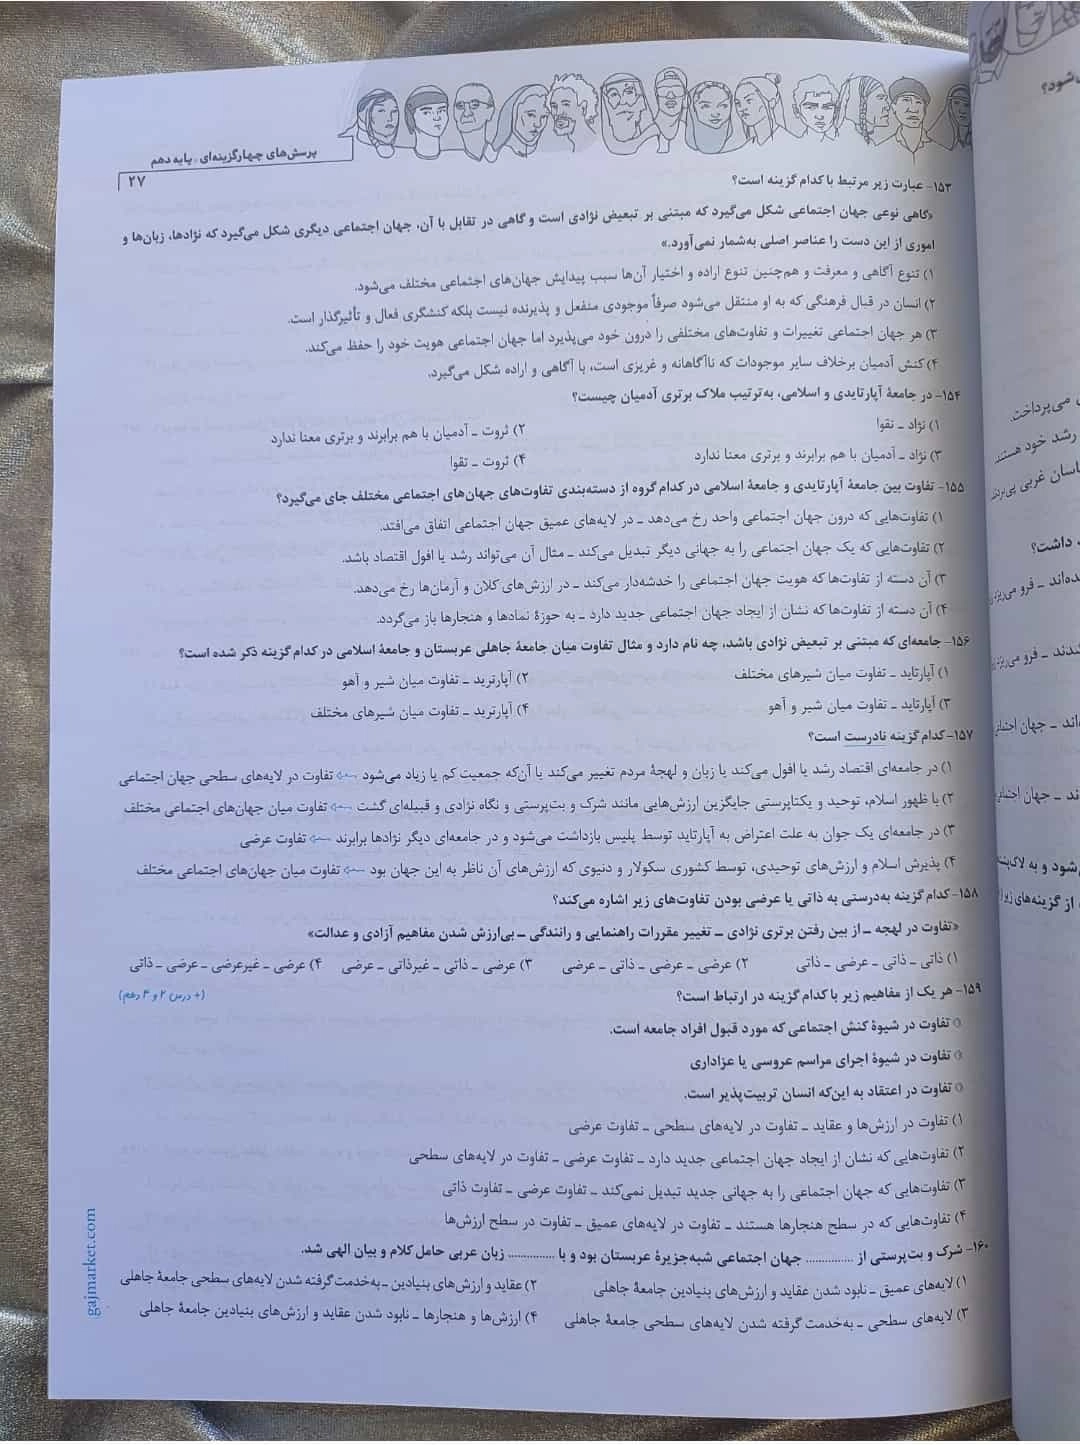 پرسش‌های چهارگزینه‌ای . پایه دهم
۲۷
۱۵۳- عبارت زیر مرتبط با کدام گزینه است؟
«گاهی نوعی جهان اجتماعی شکل می‌گیرد که مبتنی بر تبعیض نژادی است و گاهی در تقابل با آن، جهان اجتماعی دیگری شکل می‌گیرد که نژادها، زبان‌ها و
اموری از این دست را عناصر اصلی به‌شمار نمی‌آورد.»
۱) تنوع آگاهی و معرفت و هم‌چنین تنوع اراده و اختیار آن‌ها سبب پیدایش جهان‌های اجتماعی مختلف می‌شود.
۲) انسان در قبال فرهنگی که به او منتقل می‌شود صرفاً موجودی منفعل و پذیرنده نیست بلکه کنشگری فعال و تأثیرگذار است.
۳) هر جهان اجتماعی تغییرات و تفاوت‌های مختلفی را درون خود می‌پذیرد اما جهان اجتماعی هویت خود را حفظ می‌کند.
۴) کنش آدمیان برخلاف سایر موجودات که ناآگاهانه و غریزی است، با آگاهی و اراده شکل می‌گیرد.
۱۵۴- در جامعهٔ آپارتایدی و اسلامی، به‌ترتیب ملاک برتری آدمیان چیست؟
۱) نژاد ـ تقوا ۲) ثروت ـ آدمیان با هم برابرند و برتری معنا ندارد
۳) نژاد ـ آدمیان با هم برابرند و برتری معنا ندارد ۴) ثروت ـ تقوا
۱۵۵- تفاوت بین جامعهٔ آپارتایدی و جامعهٔ اسلامی در کدام گروه از دسته‌بندی تفاوت‌های جهان‌های اجتماعی مختلف جای می‌گیرد؟
۱) تفاوت‌هایی که درون جهان اجتماعی واحد رخ می‌دهد ـ در لایه‌های عمیق جهان اجتماعی اتفاق می‌افتد.
۲) تفاوت‌هایی که یک جهان اجتماعی را به جهانی دیگر تبدیل می‌کند ـ مثال آن می‌تواند رشد یا افول اقتصاد باشد.
۳) آن دسته از تفاوت‌ها که هویت جهان اجتماعی را خدشه‌دار می‌کند ـ در ارزش‌های کلان و آرمان‌ها رخ می‌دهد.
۴) آن دسته از تفاوت‌ها که نشان از ایجاد جهان اجتماعی جدید دارد ـ به حوزهٔ نمادها و هنجارها باز می‌گردد.
۱۵۶- جامعه‌ای که مبتنی بر تبعیض نژادی باشد، چه نام دارد و مثال تفاوت میان جامعهٔ جاهلی عربستان و جامعهٔ اسلامی در کدام گزینه ذکر شده است؟
۱) آپارتاید ـ تفاوت میان شیرهای مختلف ۲) آپارترید ـ تفاوت میان شیر و آهو
۳) آپارتاید ـ تفاوت میان شیر و آهو ۴) آپارترید ـ تفاوت میان شیرهای مختلف
۱۵۷- کدام گزینه نادرست است؟
۱) در جامعه‌ای اقتصاد رشد یا افول می‌کند یا زبان و لهجهٔ مردم تغییر می‌کند یا آن‌که جمعیت کم یا زیاد می‌شود ← تفاوت در لایه‌های سطحی جهان اجتماعی
۲) با ظهور اسلام، توحید و یکتاپرستی جایگزین ارزش‌هایی مانند شرک و بت‌پرستی و نگاه نژادی و قبیله‌ای گشت ← تفاوت میان جهان‌های اجتماعی مختلف
۳) در جامعه‌ای یک جوان به علت اعتراض به آپارتاید توسط پلیس بازداشت می‌شود و در جامعه‌ای دیگر نژادها برابرند ← تفاوت عرضی
۴) پذیرش اسلام و ارزش‌های توحیدی، توسط کشوری سکولار و دنیوی که ارزش‌های آن ناظر به این جهان بود ← تفاوت میان جهان‌های اجتماعی مختلف
۱۵۸- کدام گزینه به‌درستی به ذاتی یا عرضی بودن تفاوت‌های زیر اشاره می‌کند؟
«تفاوت در لهجه ـ از بین رفتن برتری نژادی ـ تغییر مقررات راهنمایی و رانندگی ـ بی‌ارزش شدن مفاهیم آزادی و عدالت»
۱) ذاتی ـ ذاتی ـ عرضی ـ ذاتی ۲) عرضی ـ عرضی ـ ذاتی ـ عرضی ۳) عرضی ـ ذاتی ـ غیرذاتی ـ عرضی ۴) عرضی ـ غیرعرضی ـ عرضی ـ ذاتی
۱۵۹- هر یک از مفاهیم زیر با کدام گزینه در ارتباط است؟ (+ درس ۲ و ۴ دهم)
تفاوت در شیوهٔ کنش اجتماعی که مورد قبول افراد جامعه است.
تفاوت در شیوهٔ اجرای مراسم عروسی یا عزاداری
تفاوت در اعتقاد به این‌که انسان تربیت‌پذیر است.
۱) تفاوت در ارزش‌ها و عقاید ـ تفاوت در لایه‌های سطحی ـ تفاوت عرضی
۲) تفاوت‌هایی که نشان از ایجاد جهان اجتماعی جدید دارد ـ تفاوت عرضی ـ تفاوت در لایه‌های سطحی
۳) تفاوت‌هایی که جهان اجتماعی را به جهانی جدید تبدیل نمی‌کند ـ تفاوت عرضی ـ تفاوت ذاتی
۴) تفاوت‌هایی که در سطح هنجارها هستند ـ تفاوت در لایه‌های عمیق ـ تفاوت در سطح ارزش‌ها
۱۶۰- شرک و بت‌پرستی از .............. جهان اجتماعی شبه‌جزیرهٔ عربستان بود و با .............. زبان عربی حامل کلام و بیان الهی شد.
۱) لایه‌های عمیق ـ نابود شدن عقاید و ارزش‌های بنیادین جامعهٔ جاهلی ۲) عقاید و ارزش‌های بنیادین ـ به‌خدمت گرفته شدن لایه‌های سطحی جامعهٔ جاهلی
۳) لایه‌های سطحی ـ به‌خدمت گرفته شدن لایه‌های سطحی جامعهٔ جاهلی ۴) ارزش‌ها و هنجارها ـ نابود شدن عقاید و ارزش‌های بنیادین جامعهٔ جاهلی
gajmarket.com
می‌پرداخت.
رشد خود هستند
غربی
داشت؟
فرو می‌ریزد
فرو می‌ریزد
جهان
جهان
از گزینه‌های زیر